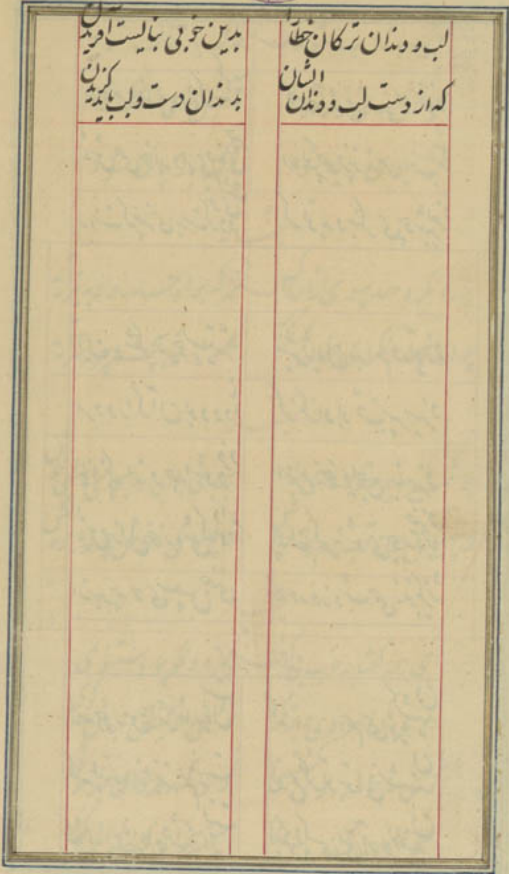 لب و دندان ترکان خطا را بدین خوبی نبایست آفریدن
که از دست لب و دندان ایشان بدندان دست و لب باید گزیدن